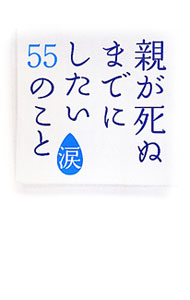 親が死ぬ
までに
したい
55のこと
涙